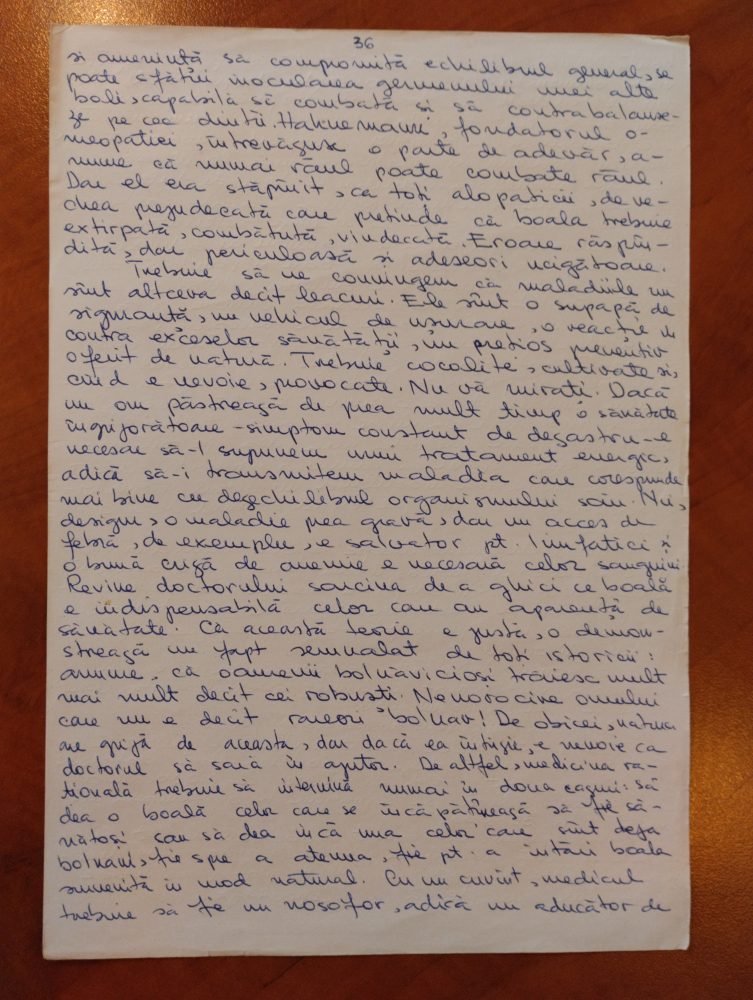 36
si amenință să compromită echilibrul general, se
poate sfătui inocularea germenului unei alte
boli, capabilă să combată si să contrabalanse-
ze pe cea dintîi. Hahnemann, fondatorul o-
meopatiei, întrevăzuse o parte de adevăr, a-
nume că numai răul poate combate răul.
Dar el era stăpînit, ca toți alopaticii, de ve-
chea prejudecată care pretinde că boala trebuie
extirpată, combătută, vindecată. Eroare răspîn-
dită, dar periculoasă si adeseori ucigătoare.
Trebuie să ne convingem că maladiile nu
sînt altceva decît leacuri. Ele sînt o supapă de
siguranță, un vehicul de uzurare, o reacție îm
contra exceselor sănătății, un prețios preventiv
oferit de natură. Trebuie cocolite, cultivate si,
cînd e nevoie, provocate. Nu vă mirați. Dacă
un om păstrează de prea mult timp o sănătate
îngrijorătoare - simptom constant de dezastru - e
necesar să-l supunem unui tratament energic,
adică să-i transmitem maladia care corespunde
mai bine cu dezechilibrul organismului său. Nu,
desigur, o maladie prea gravă, dar un acces de
febră, de exemplu, e salvator pt. limfatici și
o bună criză de anemie e necesară celor sanguini.
Revine doctorului sarcina de a ghici ce boală
e indispensabilă celor care au aparență de
sănătate. Că această teorie e justă, o demon-
strează un fapt semnalat de toți istoricii:
anume, că oamenii bolnăvicioși trăiesc mult
mai mult decît cei robusti. Nenorocire omului
care nu e decît rareori bolnav! De obicei, natura
are grijă de aceasta, dar dacă ea întîrzie, e nevoie ca
doctorul să sară în ajutor. De altfel, medicina ra-
țională trebuie să intervină numai în două cazuri: să
dea o boală celor care se încăpătînează să fie să-
nătoși sau să dea încă una celor care sînt deja
bolnavi, fie spre a atenua, fie pt. a întări boala
survenită în mod natural. Cu un cuvînt, medicul
trebuie să fie un nosofor, adică un aducător de